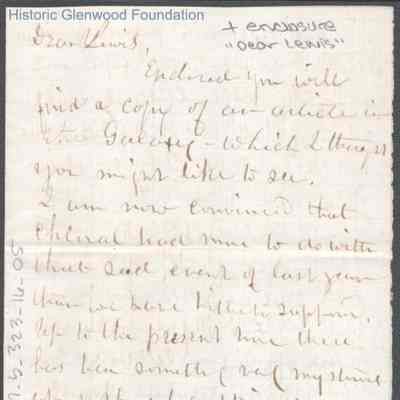 Historic Glenwood Foundation
+ enclosure
"Dear Lewis"
Dear Lewis,
Enclosed you will
find a copy of an article in
the Galaxy - which I thought
you might like to see.
I am now convinced that
chloral had more to do with
that sad event of last year
than we have hitherto suppose.
Up to the present time there
has been something
5-323-16-05